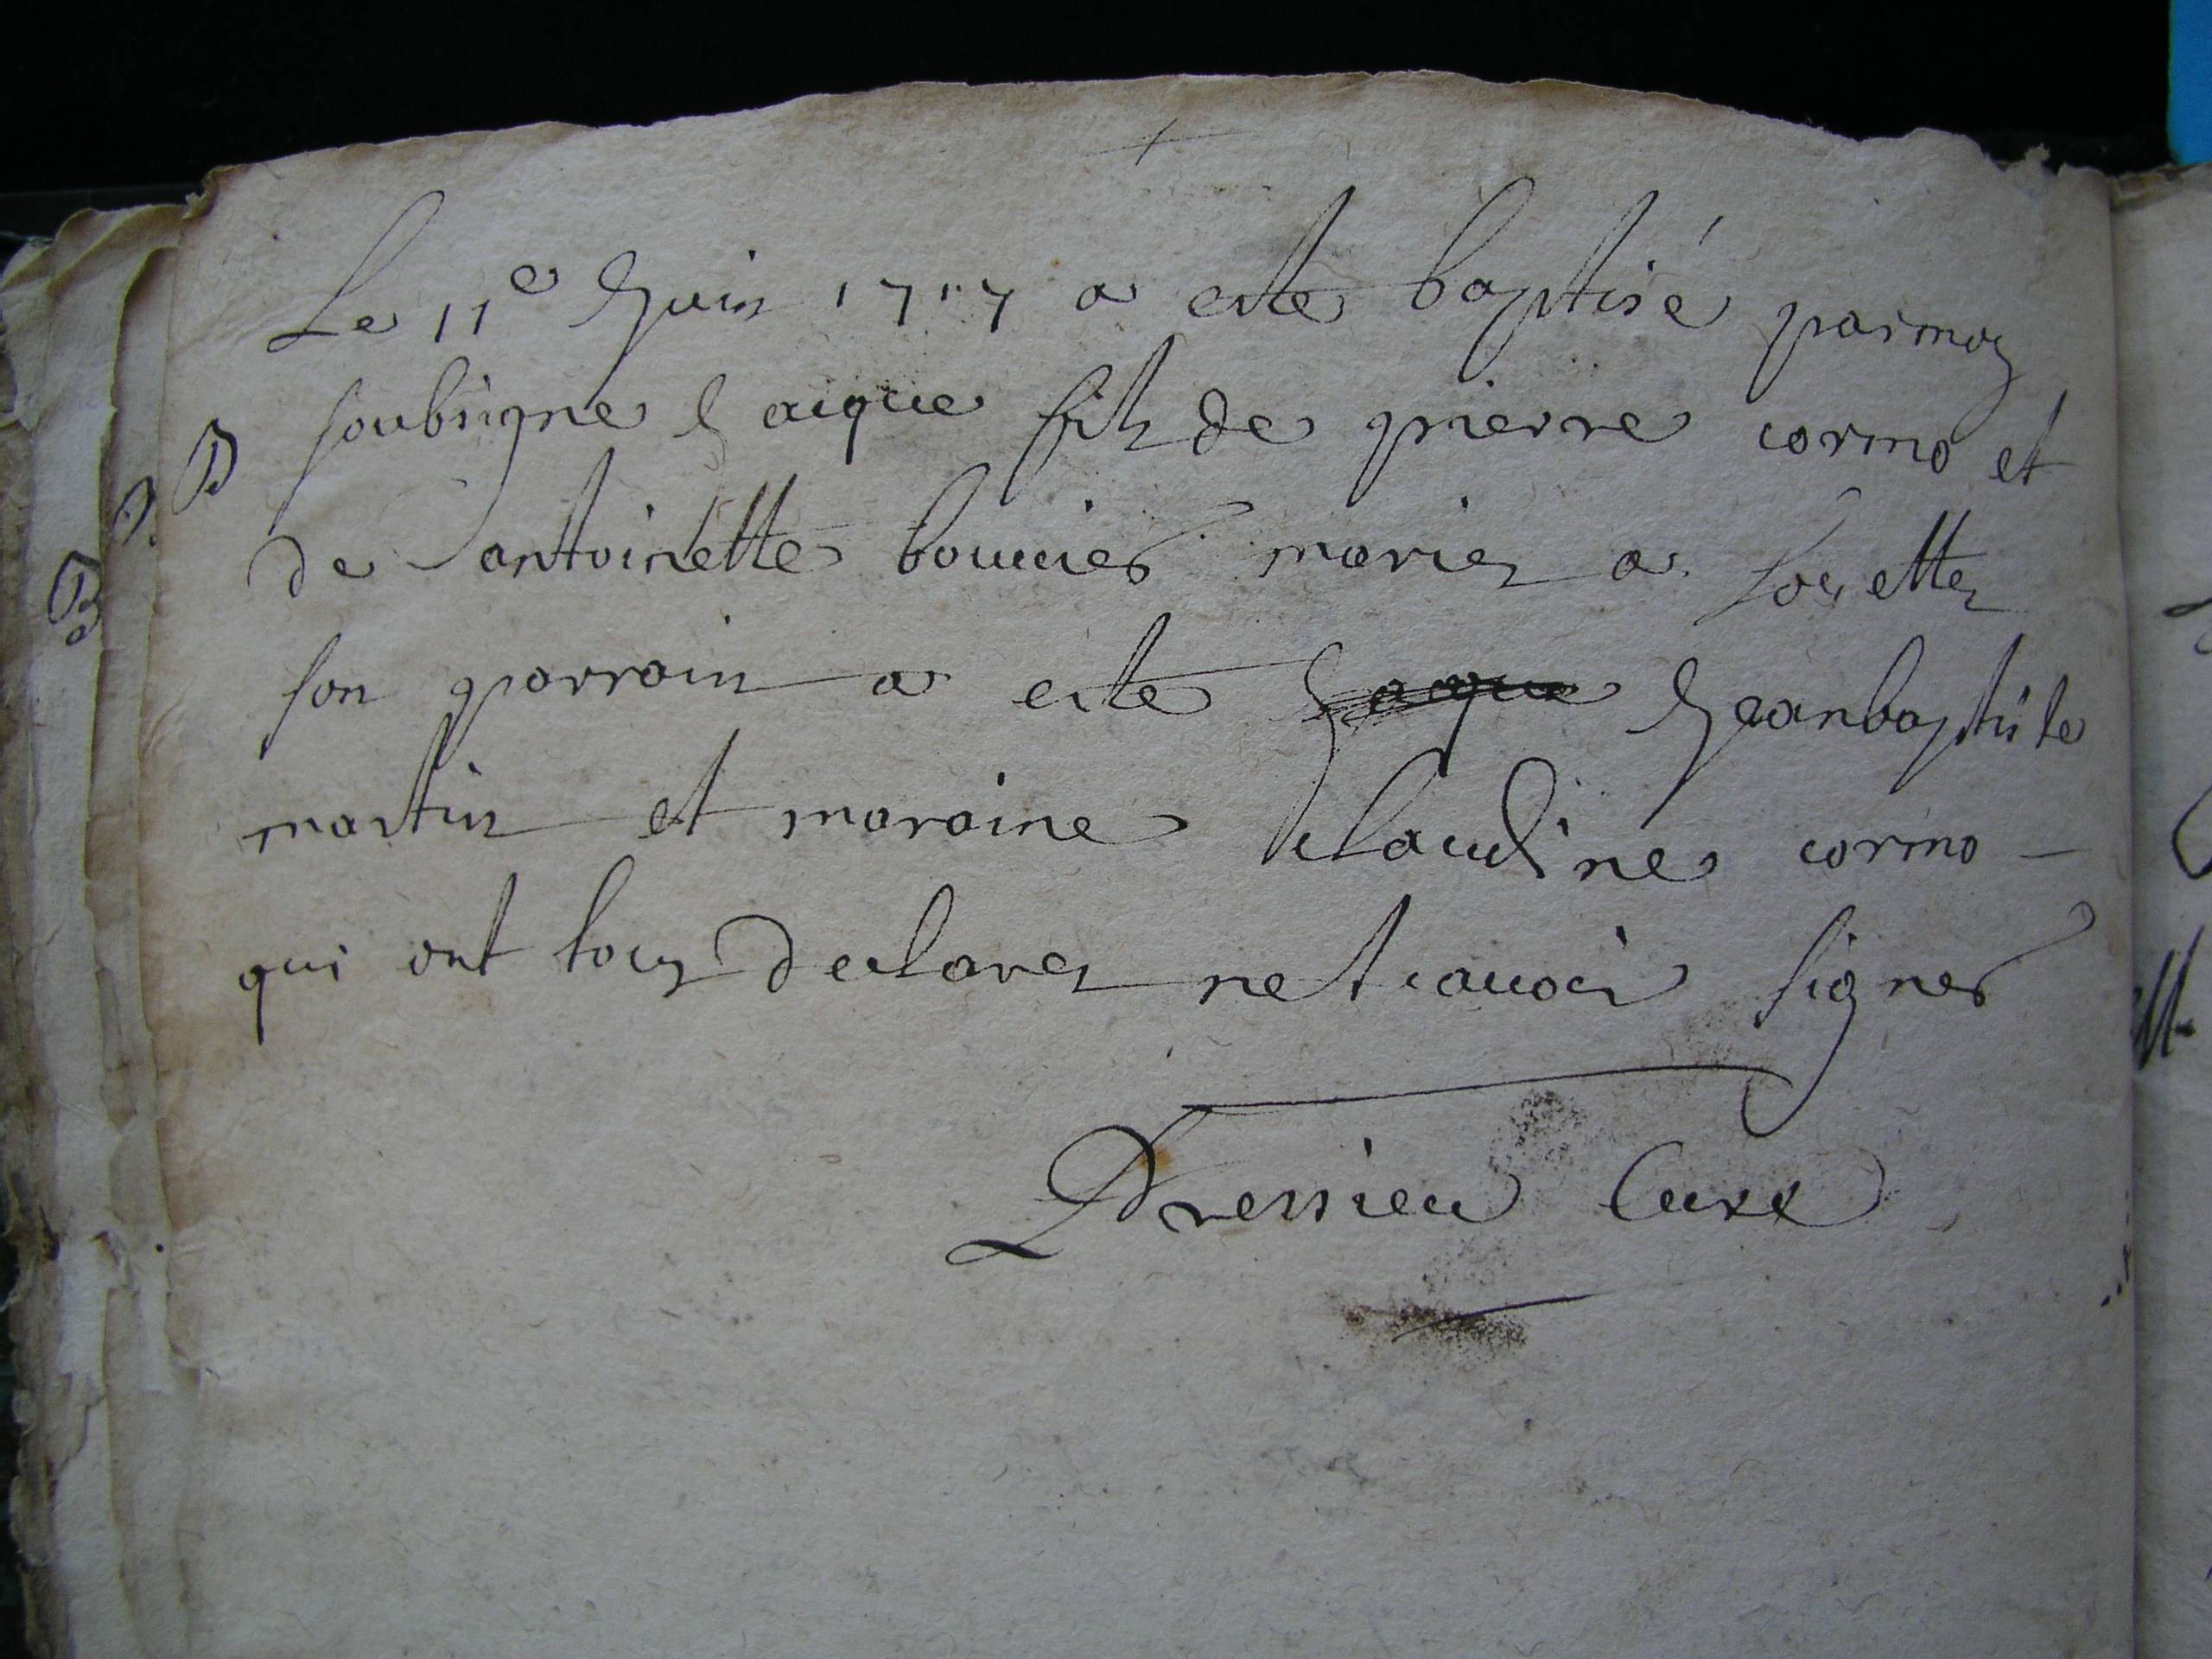 Le 11e Juin 1717 a este baptisé parmoy
B soubsigne Jaique fils de pierre cormo et
de antoinette bouuier mariez a
son parrain a este Jaque Jeanbaptiste
martin et maraine claudine cormo -
qui ont tous declarez ne scauoir signer
Dressieu Cure